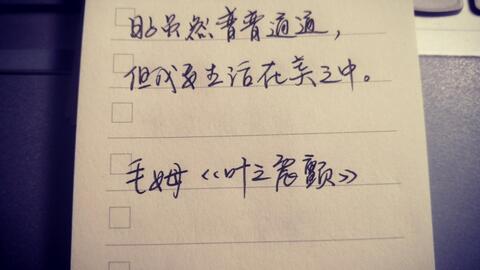 的虽然普普通通，
但我要生活在美之中。
毛姆《叶之震颤》